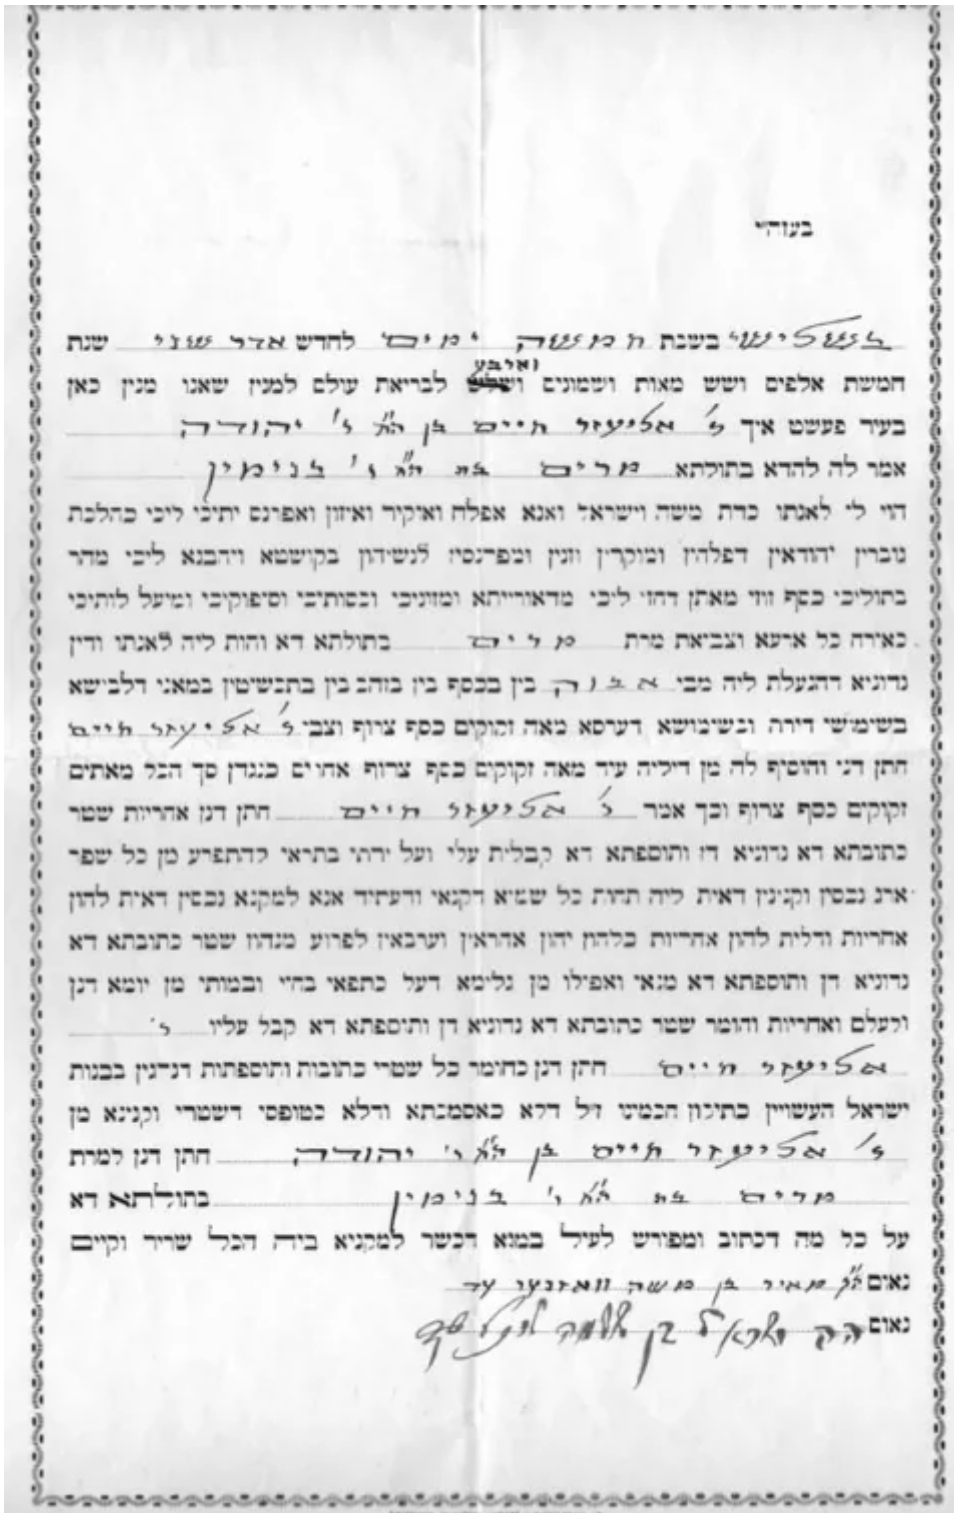 בעזהי
בשלישי בשבת חמשה ימים לחדש אדר שני שנת
וארבע
חמשת אלפים ושש מאות ושמונים ושלש לבריאת עולם למנין שאנו מנין כאן
בעיר פעשט איך ר' אליעזר חיים בן הח' ר' יהודה
אמר לה להדא בתולתא מרים בת הח' ר' בנימין
הוי לי לאנתו כדת משה וישראל ואנא אפלח ואוקיר ואיזון ואפרנס יתיכי ליכי כהלכת
גוברין יהודאין דפלחין ומוקרין וזנין ומפרנסין לנשיהון בקושטא ויהבנא ליכי מהר
בתוליכי כסף זוזי מאתן דחזי ליכי מדאורייתא ומזוניכי וכסותיכי וסיפוקיכי ומיעל לותיכי
כאורח כל ארעא וצביאת מרת מרים בתולתא דא והות ליה לאנתו ודין
נדוניא דהנעלת ליה מבי אבוה בין בכסף בין בזהב בין בתכשיטין במאני דלבושא
בשימושי דירה ובשימושא דערסא מאה זקוקים כסף צרוף וצבי ר' אליעזר חיים
חתן דנן והוסיף לה מן דיליה עוד מאה זקוקים כסף צרוף אחרים כנגדן סך הכל מאתים
זקוקים כסף צרוף וכך אמר ר' אליעזר חיים חתן דנן אחריות שטר
כתובתא דא נדוניא דן ותוספתא דא קבלית עלי ועל ירתי בתראי להתפרע מן כל שפר
ארג נכסין וקנינין דאית ליה תחות כל שמיא דקנאי ודעתיד אנא למקנא נכסין דאית להון
אחריות ודלית להון אחריות כלהון יהון אחראין וערבאין לפרוע מנהון שטר כתובתא דא
נדוניא דן ותוספתא דא מנאי ואפילו מן גלימא דעל כתפאי בחיי ובמותי מן יומא דנן
ולעלם ואחריות וחומר שטר כתובתא דא נדוניא דן ותוספתא דא קבל עליו ר'
אליעזר חיים חתן דנן כחומר כל שטרי כתובות ותוספתות דנהגין בבנות
ישראל העשויין כתיקון חכמינו ז״ל דלא כאסמכתא ודלא כטופסי דשטרי וקנינא מן
ר' אליעזר חיים בן הח' ר' יהודה חתן דנן למרת
מרים בת הח' ר' בנימין בתולתא דא
על כל מה דכתוב ומפורש לעיל במנא דכשר למקניא ביה הכל שריר וקיים
נאום הק' מאיר בן משה וואזנער עד
נאום הק' בן עד